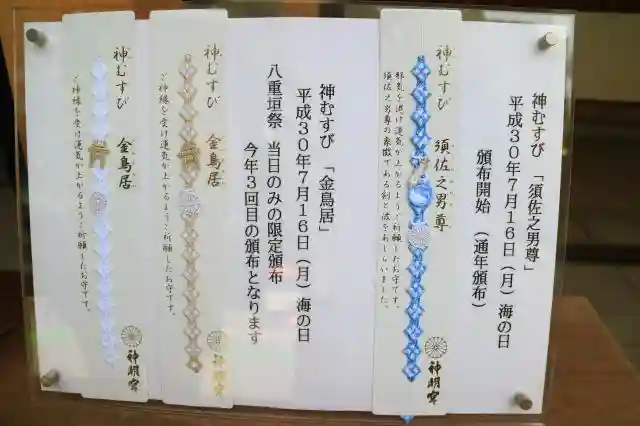 神むすび 「須佐之男尊」
平成３０年７月１６日（月）海の日
頒布開始 （通年頒布）
神むすび 須佐之男尊
邪気を祓け運気が上がるようご祈願したお守です。
須佐之男尊の象徴である剣と波をあしらいました。
神明宮
神むすび 「金鳥居」
平成３０年７月１６日（月）海の日
八重垣祭 当日のみの限定頒布
今年３回目の頒布となります
神むすび 金鳥居
ご神縁を受け運気が上がるようご祈願したお守です。
神明宮
神むすび 金鳥居
ご神縁を受け運気が上がるようご祈願したお守です。
神明宮